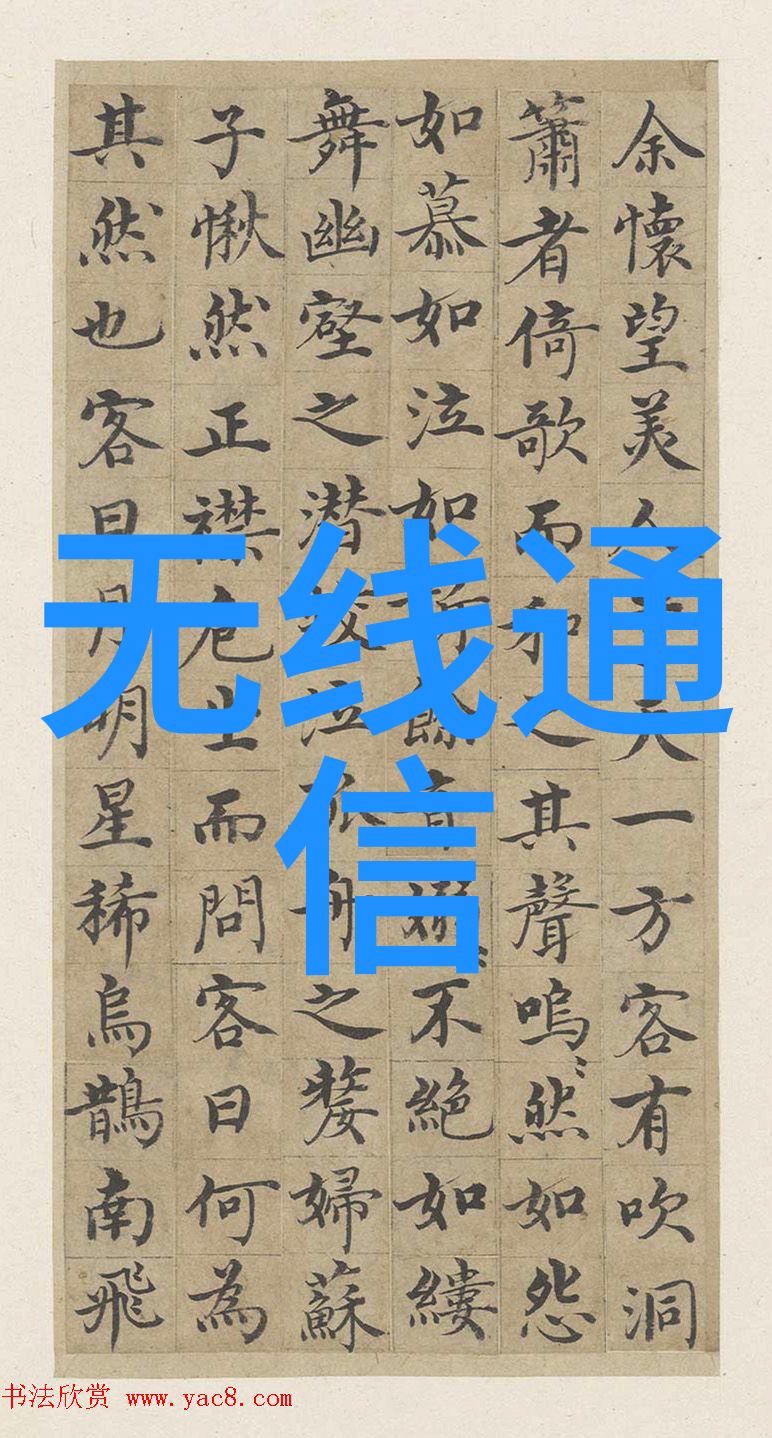 余懷望美人天一方客有吹洞
簫者倚歌而和之其聲嗚〻然如怨
如慕如泣如餘不絕如縷
舞幽壑之潜泣孤舟之嫠婦蘇
子愀然正襟危坐而問客曰何為
其然也客曰月明星稀烏鵲南飛
无线通
信
书法欣赏 www.yac8.com